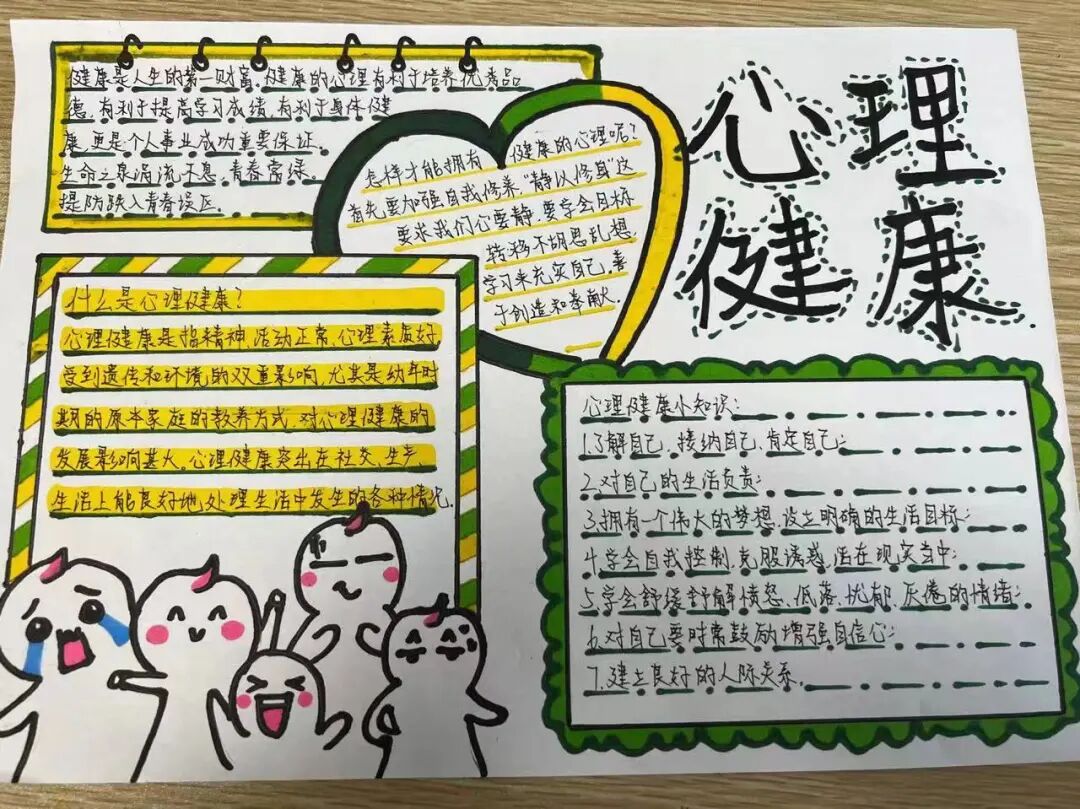 心理
健康
健康是人生的第一财富，健康的心理有利于培养优秀品
德，有利于提高学习成绩，有利于身体健
康，更是个人事业成功重要保证，
生命之泉涓流不息，青春常绿。
提防跌入青春误区.
怎样才能拥有健康的心理呢?
首先要加强自我修养."静以修身"这
要求我们心要静，要学会目标
转移不胡思乱想，
学习来充实自己，善
于创造和奉献.
什么是心理健康?
心理健康是指精神，活动正常，心理素质好，
受到遗传和环境的双重影响，尤其是幼年时
期的原本家庭的教养方式，对心理健康的
发展影响甚大，心理健康突出在社交、生产、
生活上能良好地，处理生活中发生的各种情况.
心理健康小知识:
1.了解自己，接纳自己，肯定自己;
2.对自己的生活负责;
3.拥有一个伟大的梦想，设立明确的生活目标;
4.学会自我控制，克服诱惑，活在现实当中;
5.学会舒缓舒解愤怒、低落、忧郁、厌倦的情绪;
6.对自己要时常鼓励，增强自信心;
7.建立良好的人际关系.